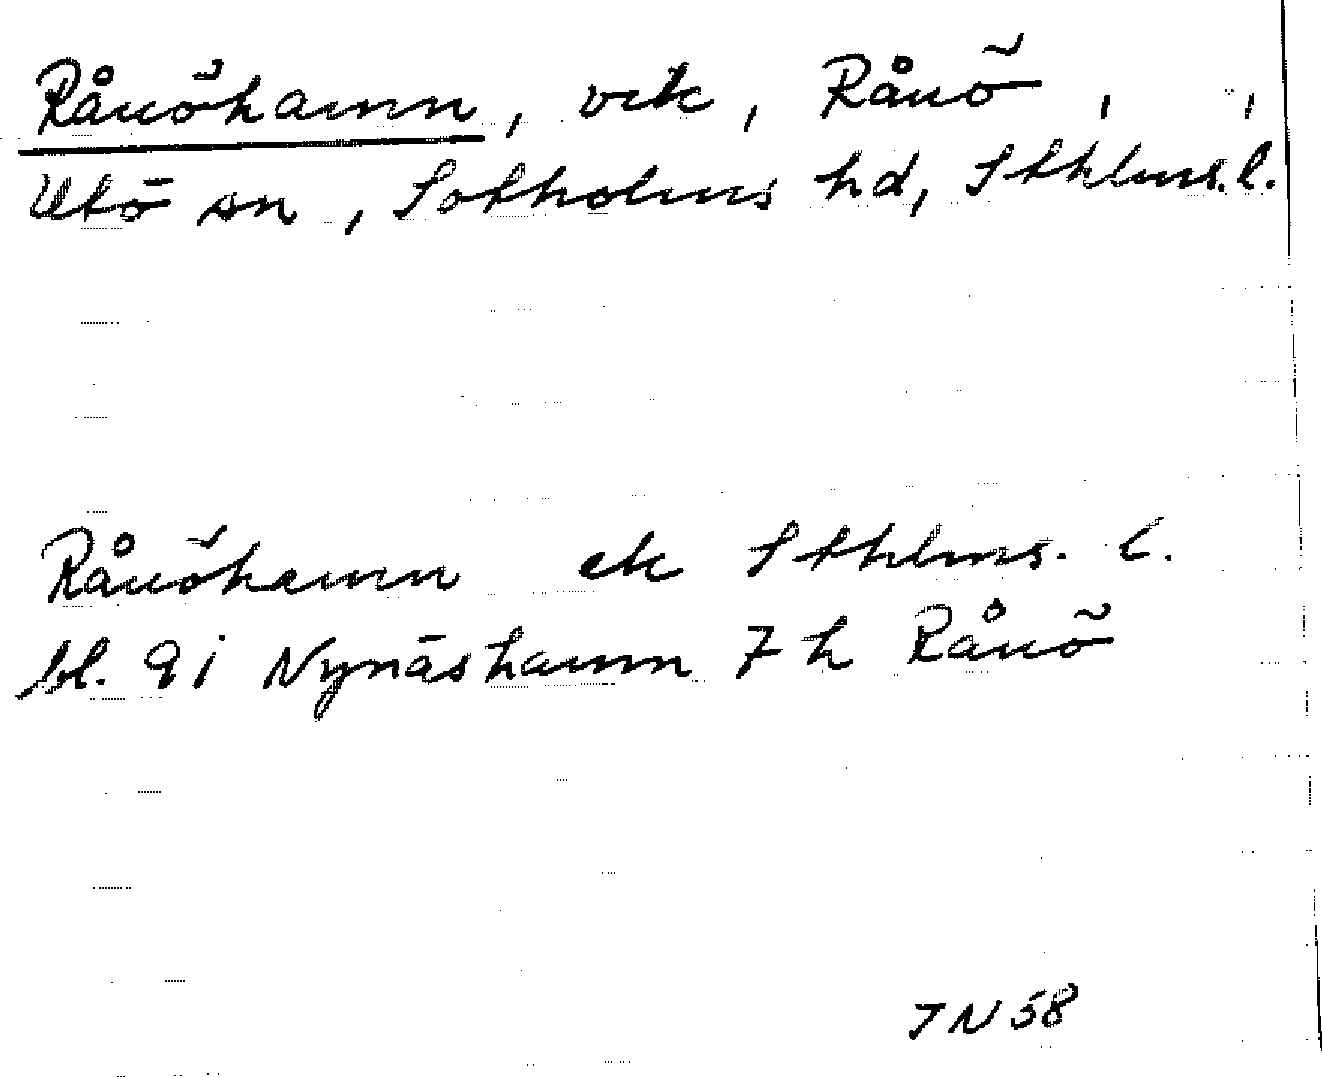 Rånöhamn, vik, Rånö , ,
Utö sn, Sotholms hd, Sthlms.l.
Rånöhamn ek Sthlms. l.
bl. 9i Nynäshamn 7 h Rånö
JN 58